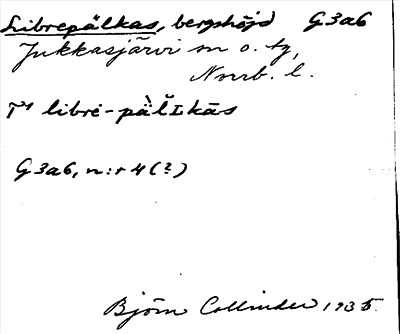 Librepälkas, bergshöjd G3a6
Jukkasjärvi sn o. tg,
Norrb. l.
libré-pàl̆ɪkās
G3a6, n:r 4 (?)
Björn Collinder 1935.